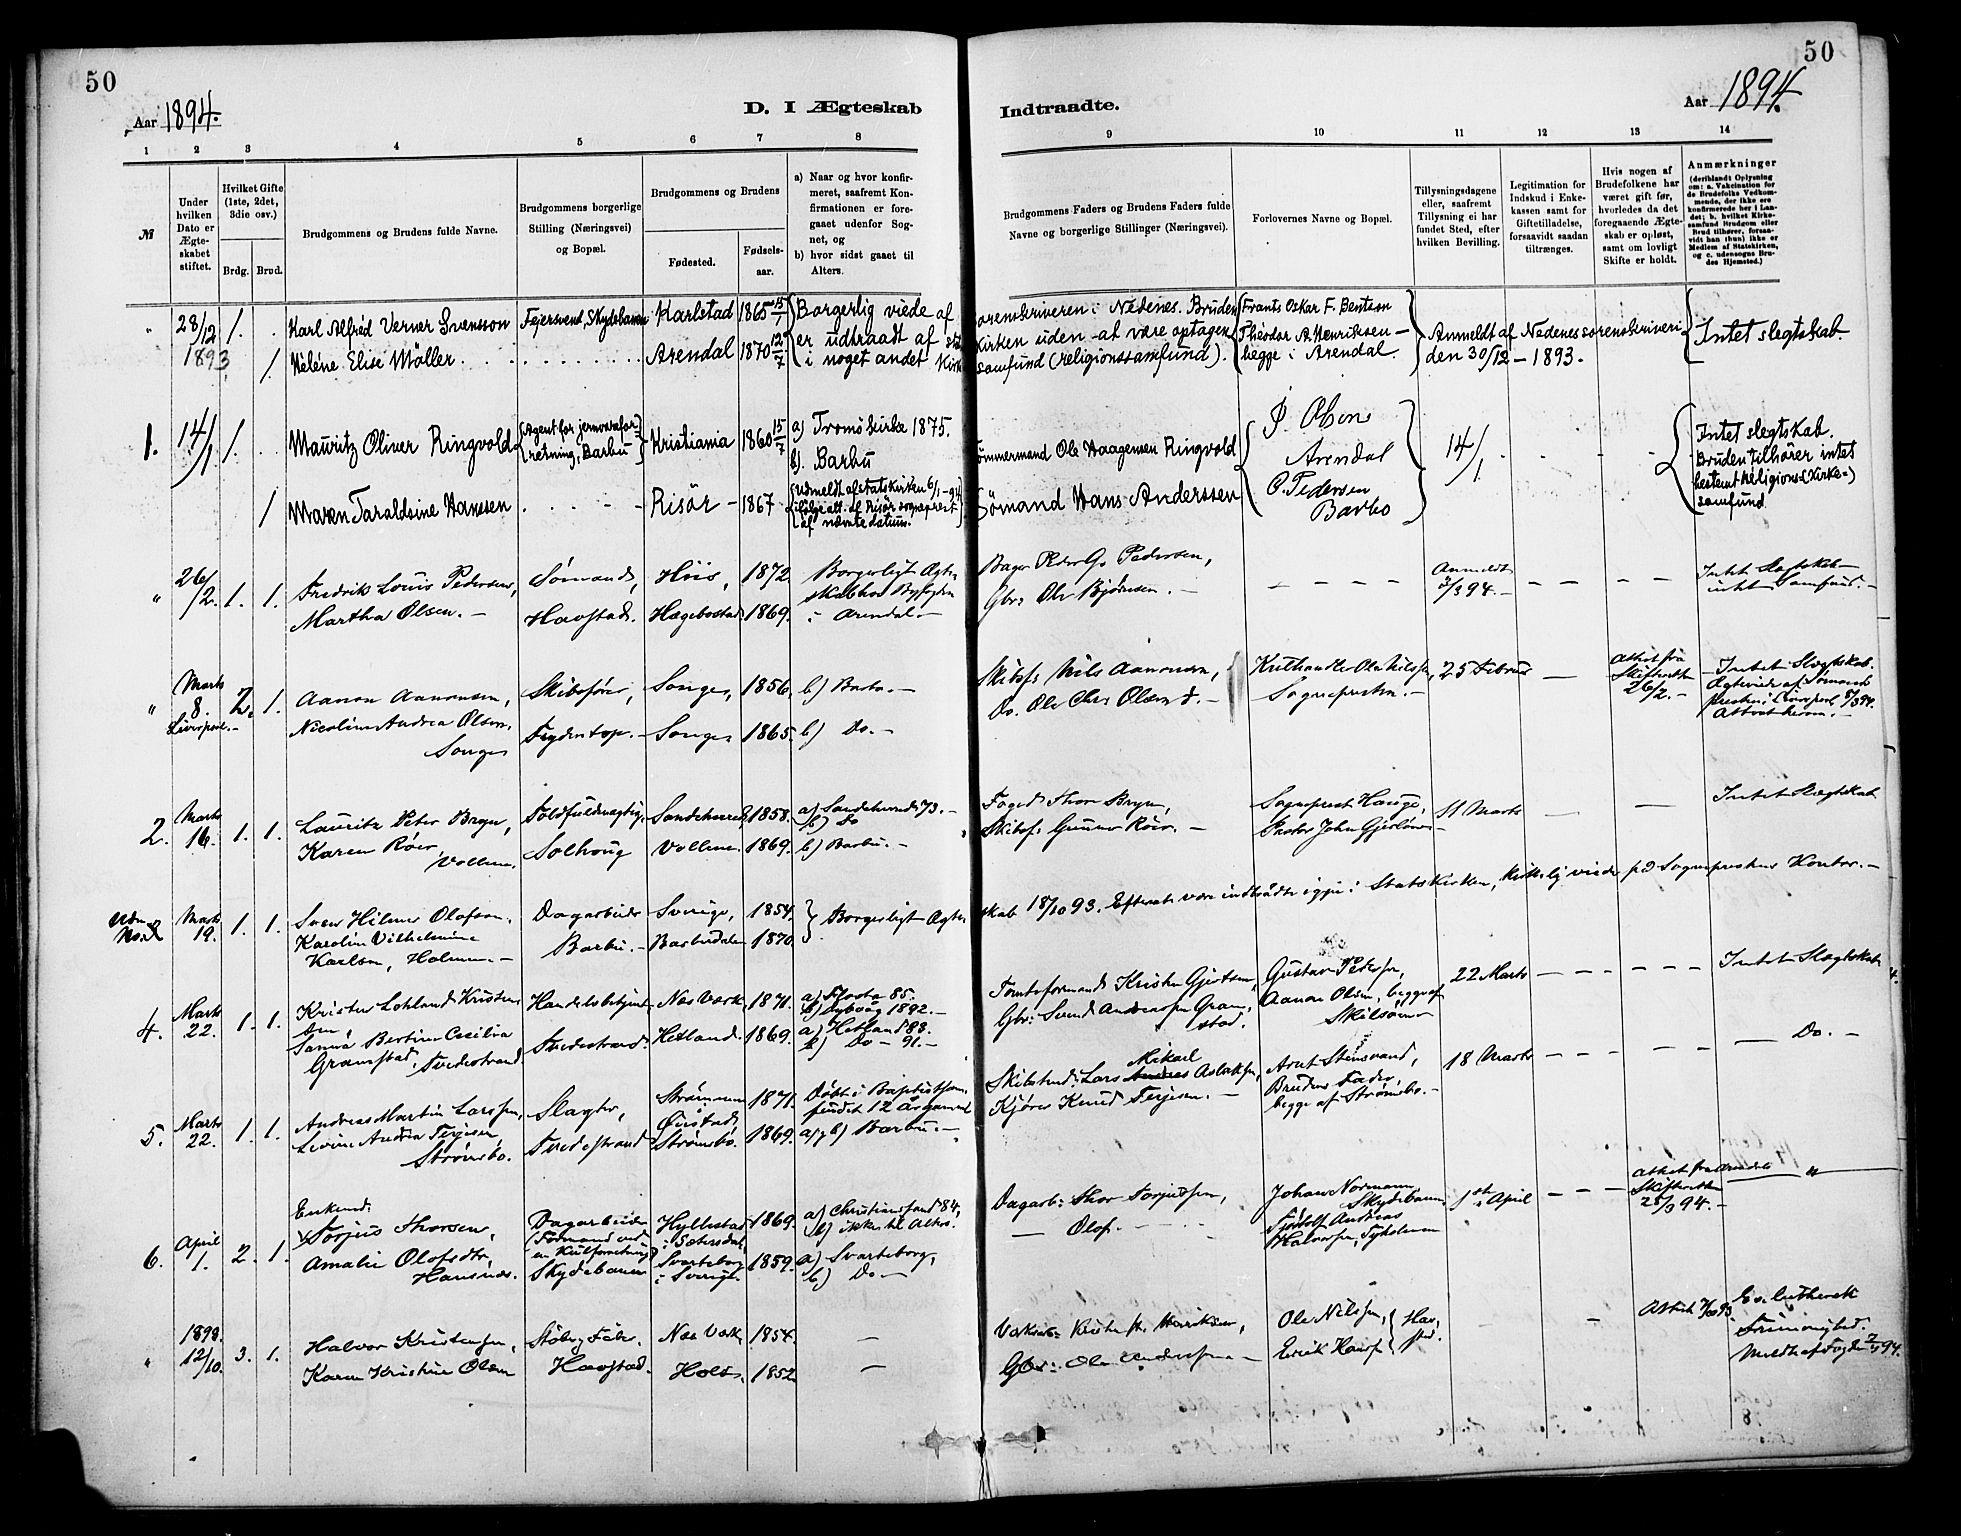 50
50
Aar 1894.
D. I Ægteskab
Indtraadte.
Aar 1894.
1 2 3 4 5 6 7 8 9 10 11 12 13 14
№
Under hvilken Dato er Ægteskabet stiftet.
Hvilket Gifte (1ste, 2det, 3die osv.)
Brdg. Brud.
Brudgommens og Brudens fulde Navne.
Brudgommens borgerlige Stilling (Næringsvei) og Bopæl.
Brudgommens og Brudens
Fødested.
Fødselsaar.
a) Naar og hvor konfirmeret, saafremt Konfirmationen er foregaaet udenfor Sognet, og
b) hvor sidst gaaet til Alters.
Brudgommens Faders og Brudens Faders fulde Navne og borgerlige Stillinger (Næringsvei).
Forlovernes Navne og Bopæl.
Tillysningsdagene eller, saafremt Tillysning ei har fundet Sted, efter hvilken Bevilling.
Legitimation for Indskud i Enkekassen samt for Giftetilladelse, forsaavidt saadan tiltrænges.
Hvis nogen af Brudefolkene har været gift før, hvorledes da det foregaaende Ægteskab er opløst, samt om lovligt Skifte er holdt.
Anmærkninger
(deriblandt Oplysning om: a. Vakcination for de Brudefolks Vedkommende, der ikke ere konfirmerede her i Landet; b. hvilket Kirkesamfund Brudgom eller Brud tilhører, forsaavidt han (hun) ikke er Medlem af Statskirken, og c. udensogns Brudes Hjemsted.)
" 28/12 1. . Karl Alfred Verner Svensson Fejersvend, Skydebanen Karlstad 1865 15/1 Borgerlig viede af sorenskriveren i Nedenes. Bruden Frants Oskar F. Bentsen
1893 / Heléne Elise Möller Arendal 1870 12/7 er udtraadt af statskirken uden at være optagen Theodor A. Henriksen
i noget andet kirkesamfund (religionssamfund). begge i Arendal. Anmeldt af Nedenes sorenskriveri
den 30/12 - 1893. Intet slegtskab.
1. 14/1 1. . Mauritz Oliver Ringvold Agent for jernvareforretning, Barbu Kristiania 1860 15/7 a) Tromö kirke 1875.
b). Barbu Tömmermand Ole Haagensen Ringvold P. Olsen
Arendal 14/1
/ Maren Taraldsine Hanssen Risör 1867 Udmeldt af statskirken 6/1-94
ifölge att. af Risör sogneprest
af nævnte datum. Sömand Hans Anderssen O. Pedersen
Barbo Intet slegtskab.
Bruden tilhörer intet
bestemt religions-(kirke-)
samfund
" 26/2. 1. 1. Fredrik Louis Pedersen, Sømand, Hiis, 1872. Borgerligt Ægte- Bager Peder G. Pedersen, Anmeldt
Martha Olsen. Havstad. Hægebostad 1869. skab hos Byfogden
i Arendal. Gbr: Ole Bjørnsen. 2/3 94. Intet Slægtskab
intet Samfund.
" Marts 8. 2. 1. Aanon Aanonsen, Skibsfører, Songe, 1856. b) Barbu. Skibsf: Nils Aanonsen, 25 Februar Attest fra
Skifteretten
26/2. Intet Slægtskab.
Liverpool. Nicoline Andrea Olsen, Songe Songe 1865. b) Do. Do. Ole Chr. Olsen d. Sognepresten.
2. Marts 16. 1. 1. Lauritz Peter Bryn, Toldfuldmægtig, Sandeherred 1858. a) Sandeherred 73.
b) Do Foged Thor Bryn, Sogneprest Hauge, 11 Marts Intet Slægtskab
Karen Röer, Vollene. Solhoug Vollene. 1869. b) Barbu. Skibsf: Gunner Röer. Pastor John Gjerlöw
Uden No. Marts 19. 1. 1. Sven Hilmer Olafson. Dagarbeider Sverige, 1854. Borgerligt Ægteskab 18/10 93. Efter at være indtrådte igjen i Statskirken, kirkelig viede på Sogneprestens Kontor.
Karoline Vilhelmine
Karlsen, Holmen. Barbu. Barbudalen 1870
4. Marts 22. 1. 1. Kristen Lohland Kristensen, Handelsbetjent, Næs Værk, 1871. a) Flosta 85.
b) Dybvåg 1892. Tomteformand Kristen Gjertsen, Gustav Pedersen, 22 Marts Intet Slægtskab
Sanna Bertine Cecilia
Gramstad, Tvedestrand Tvedestrand. Hetland. 1869. a) Hetland 83.
b) Do 91. Gbr: Svend Andreassen Gramstad. Aanon Olsen, begge af
Skilsøen
5. Marts 22. 1. 1. Andreas Martin Larssen, Slagter, Strømmen 1871. Döbt i Baptistsamfundet 12 År gammel Skibstmd: Lars Mikael Aslaksen, Arnt Stensvand, 18 Marts Do.
Levine Andrea Terjesen,
Strømsbo. Tvedestrand Strømsbo. 1869. a) & b) Barbu. Kjörer Knud Terjesen. Brudens Fader,
begge af Strømsbo.
6. April 1. 2. 1. Enkemd:
Torjus Thorsen, Dagarbeider
(Formand ved
en Kulforretning)
Skydebanen Hyllestad
i Sætersdal, 1869. a) Christianssand 84,
b) ikke til Alters. Dagarb: Thor Torjussen, Johan Normann,
Skydebanen 1ste April Attest fra Arendals
Skifteretten
28/3 94. "
Amalie Olofsdtr,
Hansnæs. Svarteborg
i Sverige. 1859. a) Svarteborg,
b) Do Olof. Halvorsen, Tyholmen
" 1893. 12/10. 3. 1. Halvor Kristensen, Støberg Næs Værk 1854. Ole Nilssen, Attest Ev. luthersk
Frimenighed.
Karen Kristine Olsen Havstad. Holt. 1852. Gbr: Ole Anderssen Erik Hansen Havsted. Meldt af Fogden